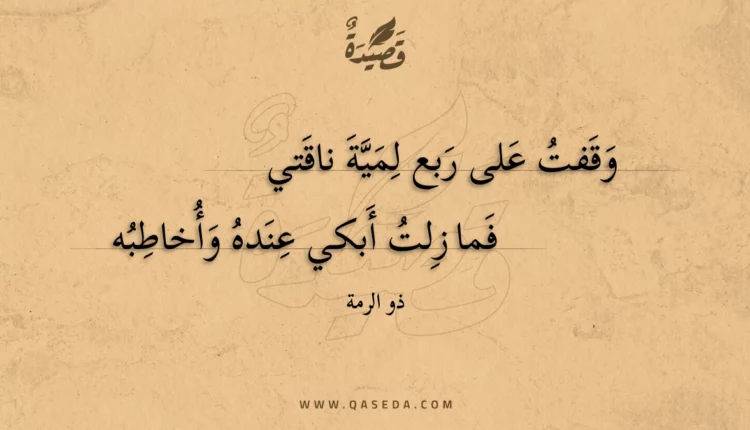 قَصِيْدَةٌ
وَقَفتُ عَلى رَبع لِمَيَّةَ ناقَتي
فَما زِلتُ أَبكي عِندَهُ وَأُخاطِبُه
ذو الرمة
WWW.QASEDA.COM